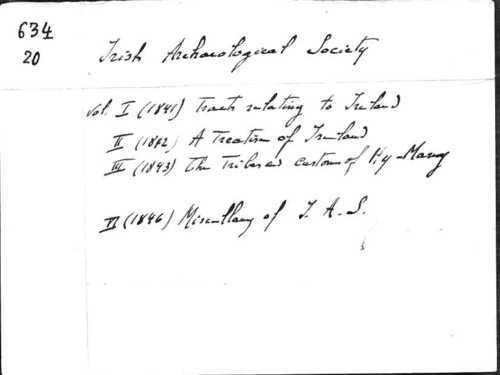 634
20
Irish Archaeological Society
Vol. I (1841) Tracts relating to Ireland
II (1842) A Treatise of Ireland
III (1843) The Tribes and customs of Hy-Many
(1846) Miscellany of I. A. S.